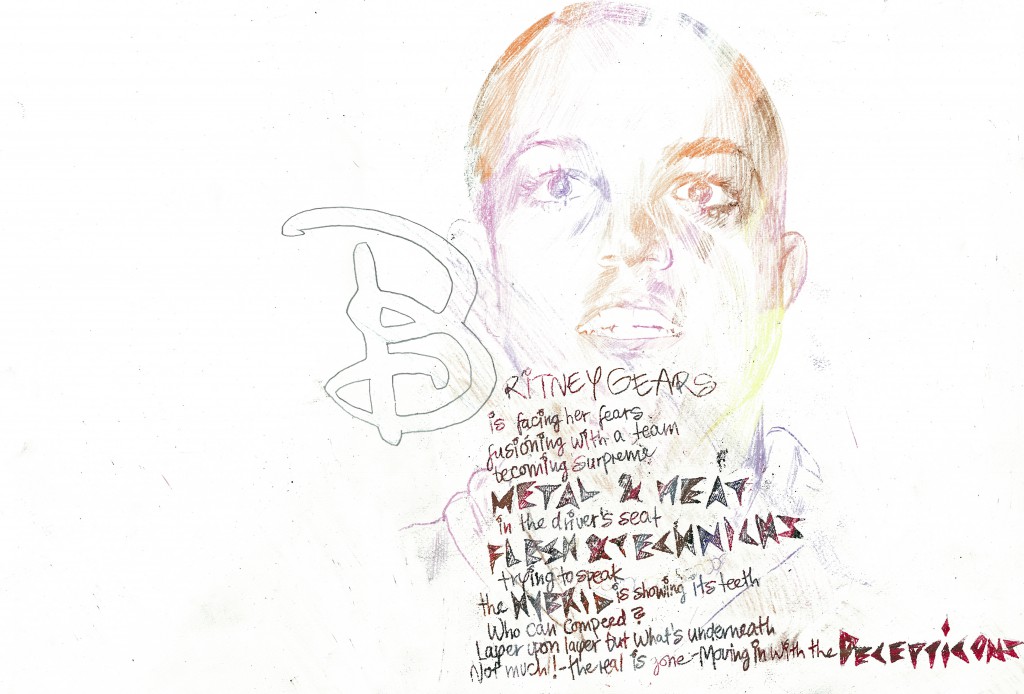 BRITNEY GEARS
is facing her fears
fusioning with a team
becoming surpreme
METAL & MEAT
in the driver's seat
FLESH & TECHNICKS
trying to speak
the HYBRID is showing its teeth
Who can compeed?
Layer upon layer but what's underneath
Not much!! - the real is gone - Moving in with the DECEPTICONS